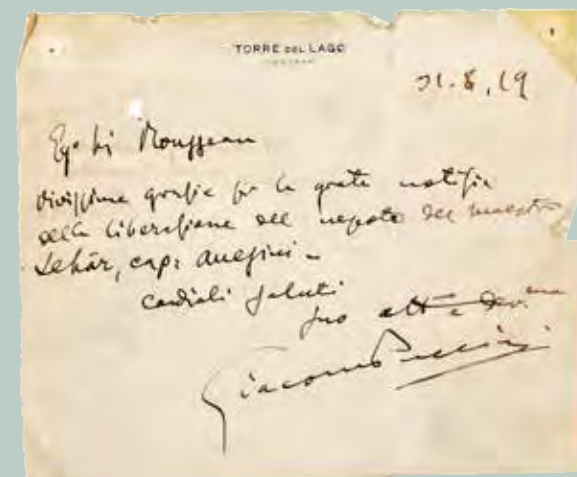 TORRE DEL LAGO
31.8.19
Eg. Sig. Mousseau
Vivissime grazie per la grata notizia
della liberazione del nepote del maestro
Lehár, cap:
cordiali saluti
Suo
Giacomo Puccini